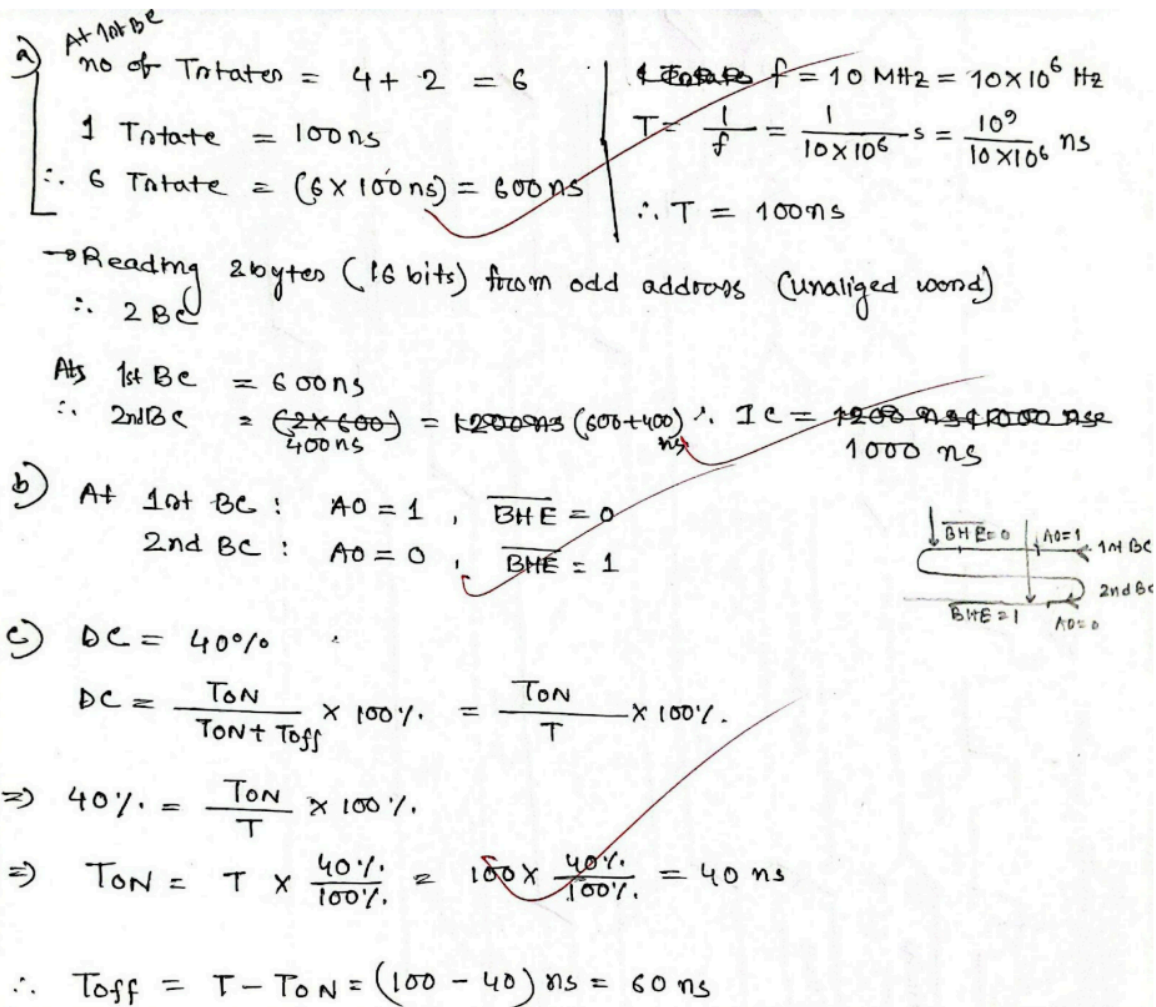 a) At 1st BC
no of Tstates = 4 + 2 = 6
1 Tstate = 100ns
∴ 6 Tstate = (6 × 100ns) = 600 ns
f = 10 MHz = 10×10⁶ Hz
T = 1/f = 1/(10×10⁶) s = 10⁹/(10×10⁶) ns
∴ T = 100ns
→ Reading 2bytes (16 bits) from odd address (unaliged word)
∴ 2 BC
1st BC = 600ns
∴ 2nd BC = (2×600) 400ns = 1200ns (600+400) ns ∴ IC = 1200 ns 1000 ns
1000 ns
b) At 1st BC : A0 = 1 , B̅H̅E̅ = 0
2nd BC : A0 = 0 , B̅H̅E̅ = 1
B̅H̅E̅=0 A0=1 1st BC
2nd BC
B̅H̅E̅=1 A0=0
c) DC = 40%
DC = TON/(TON + Toff) × 100% = TON/T × 100%.
⇒ 40% = TON/T × 100%.
⇒ TON = T × 40%/100% = 100 × 40%/100% = 40 ns
∴ Toff = T – TON = (100 – 40) ns = 60 ns